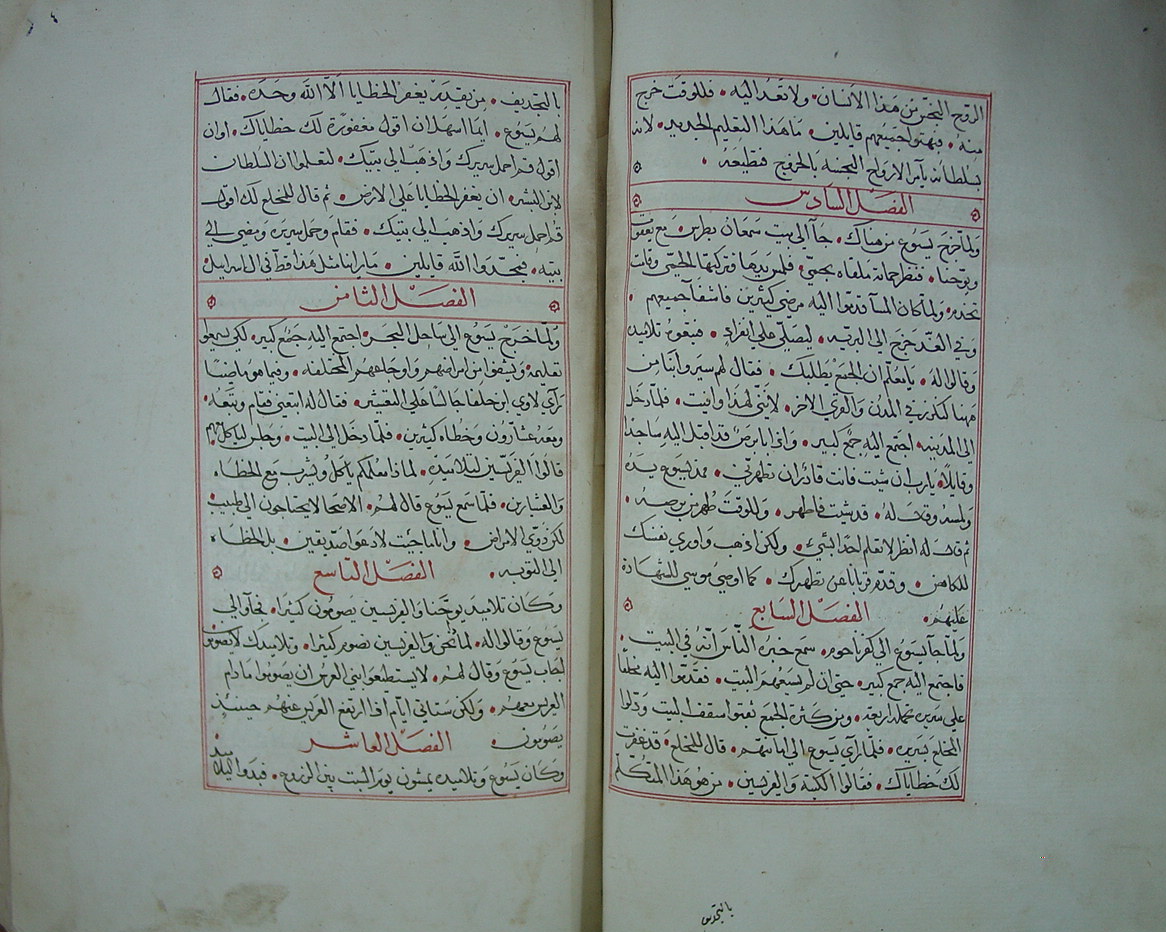 الروح النجس من هذا الانسان • ولا تعد اليه • فللوقت خرج
منه • فبهتوا جميعهم قايلين • ما هذا التعليم الجديد • لانه
بسلطانه يأمر الارواح النجسه بالخروج فتطيعه •
الفصل السادس
ولما خرج يسوع من هناك • جآ الى بيت سمعان بطرس • مع يعقوب
ويوحنا • فنظر حماته ملقاه بحمى • فلمس يدها فتركتها الحمى وقامت
تخدمه • ولما كان المسآ قدموا اليه مرضى كثيرين فاشفا جميعهم •
وفي الغد خرج الى البريه • ليصلي على انفراد • فتبعوه تلاميذه
وقالوا له • يا معلم ان الجميع يطلبك • فقال لهم سيروا بنا من
ههنا لنكرز في المدن والقرى الاخر • لانني لهذا وافيت • فلما دخل
الى المدينه اجتمع اليه جمع كبير • واذا بابرص قد اقبل اليه ساجدا
وقايلا • يا رب ان شيت فانت قادر ان تطهرني • فمد يسوع يده
ولمسه وقال له • قد شيت فاطهر • وللوقت طهر من برصه •
ثم قال له انظر لا تعلم احدا بشي • ولكن اذهب واوري نفسك
للكاهن • وقدم قربانا عن تطهرك • كما اوصى موسى للشهادة
عليهم • الفصل السابع
ولما جآ يسوع الى كفرناحوم • سمع خبره الناس انه في البيت •
فاجتمع اليه جمع كبير • حتى ان لم يسعهم البيت • فقدموا اليه مخلعا
على سرير تحمله اربعه • ومن كثرة الجمع نقبوا سقف البيت ودلوا
المخلع بسريره • فلما رأى يسوع الى امانتهم • قال للمخلع • قد غفرت
لك خطاياك • فقالوا الكتبة والفريسين • من هو هذا المتكلم
بالتجديف
بالتجديف • من يقدر يغفر الخطايا الا الله وحده • فقال
لهم يسوع • ايما اسهل ان اقول مغفورة لك خطاياك • اوان
اقول قم احمل سريرك واذهب الى بيتك • لتعلموا ان السلطان
لابن البشر • ان يغفر الخطايا على الارض • ثم قال للمخلع لك اقول
قم احمل سريرك واذهب الى بيتك • فقام وحمل سريره ومضى الى
بيته • فمجدوا الله قايلين • ما راينا مثل هذا قط في ال اسراييل
الفصل الثامن
ولما خرج يسوع الى ساحل البحر • اجتمع اليه جمع كبير • لكي يسمعوا
تعليمه ويشفوا من امراضهم واوجاعهم المختلفه • وفيما هو ماضيا
رآى لاوي ابن حلفا جالسا على المعشر • فقال له اتبعني فقام وتبعه •
ومعه عشارون وخطاه كثيرين • فلما دخل الى البيت • وجلس لياكل معهم
قالوا الفريسين لتلاميذه • لماذا معلمكم ياكل ويشرب مع الخطاه
والعشارين • فلما سمع يسوع قال لهم • الاصحا لا يحتاجون الى طبيب
لكن ذوي الامراض • وانما جيت لا دعوا صديقين • بل الخطاه
الى التوبه • الفصل التاسع
وكان تلاميذ يوحنا والفريسين يصومون كثيرا • فجآوا الى
يسوع وقالوا له • لما نحن والفريسين نصوم كثيرا • وتلاميذك لا يصومو
اجاب يسوع وقال لهم • لا يستطيعوا بني العرس ان يصوموا ما دام
العريس معهم • ولكن ستاتي ايام اذا ارتفع العريس عنهم حينيذ
يصومون • الفصل العاشر
وكان يسوع وتلاميذه يمشون يوم السبت بين الزروع • فبدوا تلاميذه